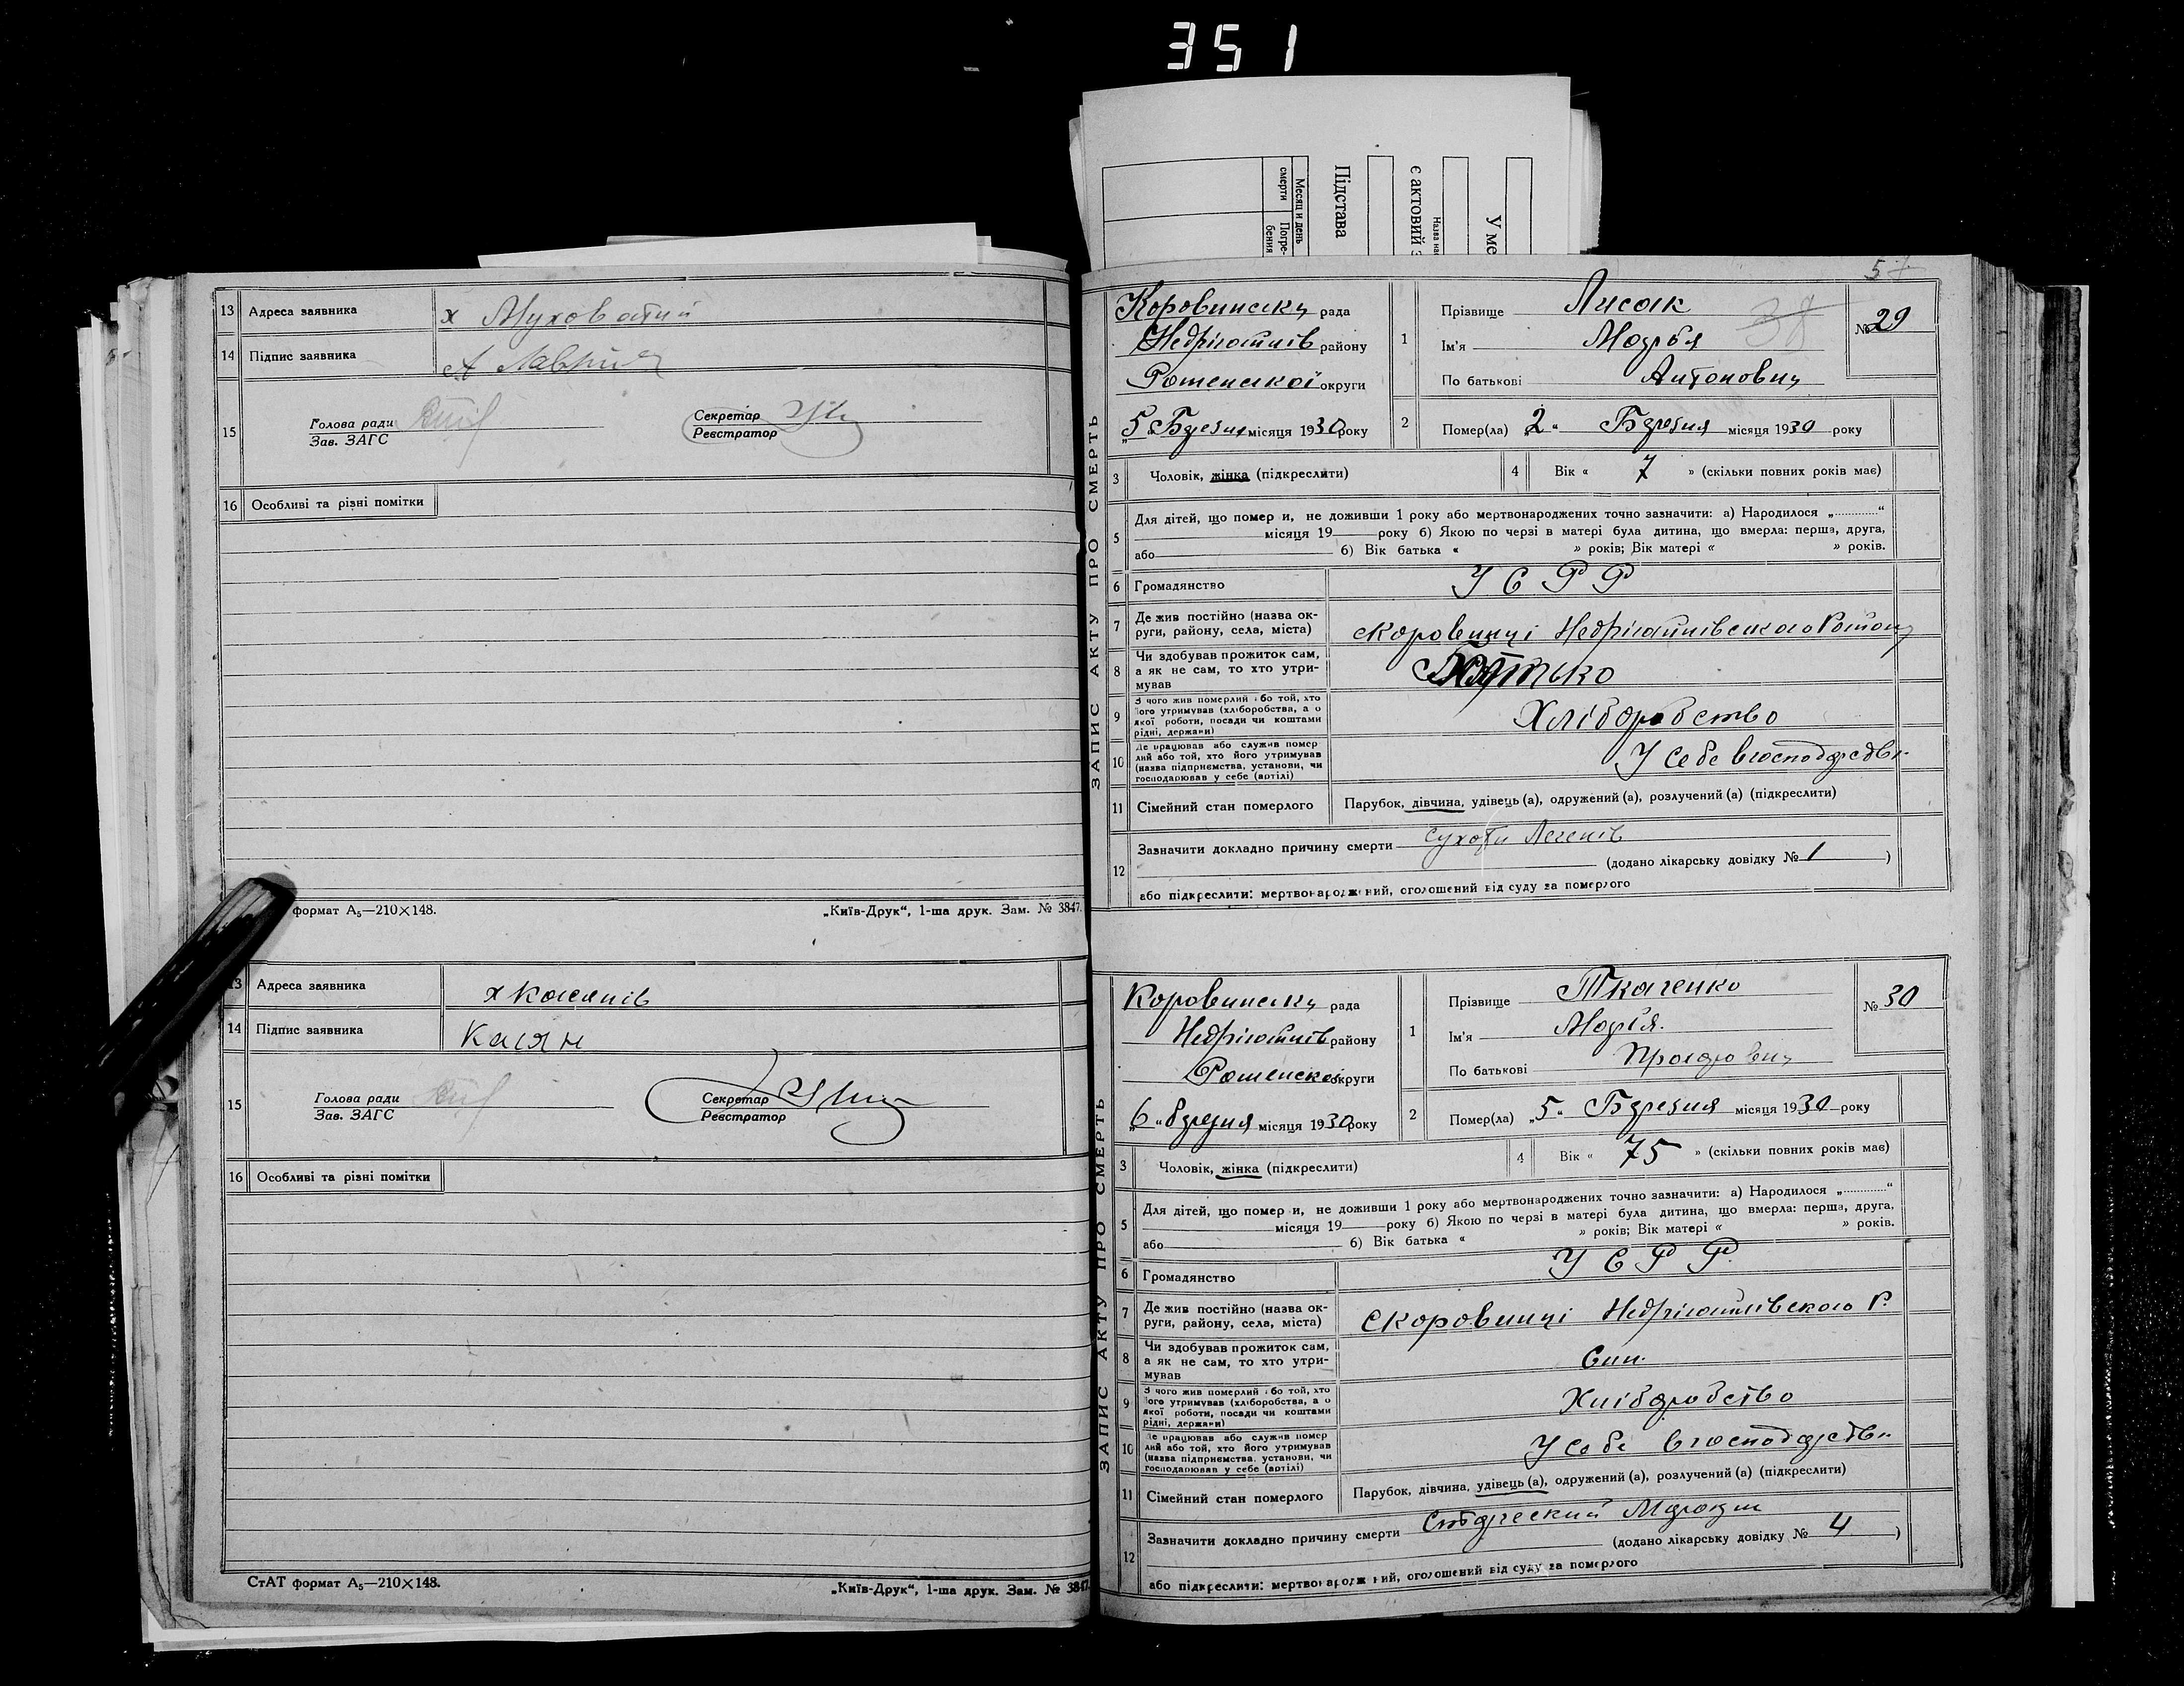 351
Месяц и день
смерти Погре-
бения
Підстава
є актовий з
Назва на
У ме
13 Адреса заявника х Муховатий
14 Підпис заявника
15 Голова ради
Зав. ЗАГС
Секретар
Реєстратор
16 Особливі та різні помітки
формат А5—210×148. „Київ-Друк“, 1-ша друк. Зам. № 3847.
13 Адреса заявника х Касянів
14 Підпис заявника Касян
15 Голова ради
Зав. ЗАГС
Секретар
Реєстратор
16 Особливі та різні помітки
СтАТ формат А5—210×148. „Київ-Друк“, 1-ша друк. Зам. № 3847.
57
ЗАПИС АКТУ ПРО СМЕРТЬ
Коровинську рада
Недригайлів району
Роменської округи
„5“ Березня місяця 1930 року
1 Прізвище Лисак 38
Ім'я Марія
По батькові Антоновна
№ 29
2 Помер(ла) „2“ Березня місяця 1930 року
3 Чоловік, жінка (підкреслити)
4 Вік « 7 » (скільки повних років має)
5 Для дітей, що помер и, не доживши 1 року або мертвонароджених точно зазначити: а) Народилося „............“
місяця 19 року б) Якою по черзі в матері була дитина, що вмерла: перша, друга,
або б) Вік батька « » років; Вік матері « » років.
6 Громадянство У С Р Р
7 Де жив постійно (назва ок-
руги, району, села, міста) с Коровинці Недригайлівського Району
8 Чи здобував прожиток сам,
а як не сам, то хто утри-
мував Батько
9 З чого жив померлий або той, хто
його утримував (хліборобства, а о
якої роботи, посади чи коштами
рідні, держави) Хліборобство
10 Де працював або служив помер
лий або той, хто його утримував
(назва підприємства, установи, чи
господарював у себе (артілі) У себе в господарстві
11 Сімейний стан померлого Парубок, дівчина, удівець (а), одружений (а), розлучений (а) (підкреслити)
12 Зазначити докладно причину смерти Сухоти Легенів
(додано лікарську довідку № 1 )
або підкреслити: мертвонароджений, оголошений від суду за померлого
ЗАПИС АКТУ ПРО СМЕРТЬ
Коровинську рада
Недригайлів району
Роменської округи
„6“ березня місяця 1930 року
1 Прізвище Ткаченко
Ім'я Марія.
По батькові
№ 30
2 Помер(ла) „5“ Березня місяця 1930 року
3 Чоловік, жінка (підкреслити)
4 Вік « 75 » (скільки повних років має)
5 Для дітей, що помер и, не доживши 1 року або мертвонароджених точно зазначити: а) Народилося „............“
місяця 19 року б) Якою по черзі в матері була дитина, що вмерла: перша, друга,
або б) Вік батька « » років; Вік матері « » років.
6 Громадянство У С Р Р.
7 Де жив постійно (назва ок-
руги, району, села, міста) с Коровинці Недригайлівського Р.
8 Чи здобував прожиток сам,
а як не сам, то хто утри-
мував Син.
9 З чого жив померлий або той, хто
його утримував (хліборобства, а о
якої роботи, посади чи коштами
рідні, держави) Хліборобство
10 Де працював або служив помер
лий або той, хто його утримував
(назва підприємства, установи, чи
господарював у себе (артілі) У себе в господарстві
11 Сімейний стан померлого Парубок, дівчина, удівець (а), одружений (а), розлучений (а) (підкреслити)
12 Зазначити докладно причину смерти Старческий Маразм
(додано лікарську довідку № 4 )
або підкреслити: мертвонароджений, оголошений від суду за померлого